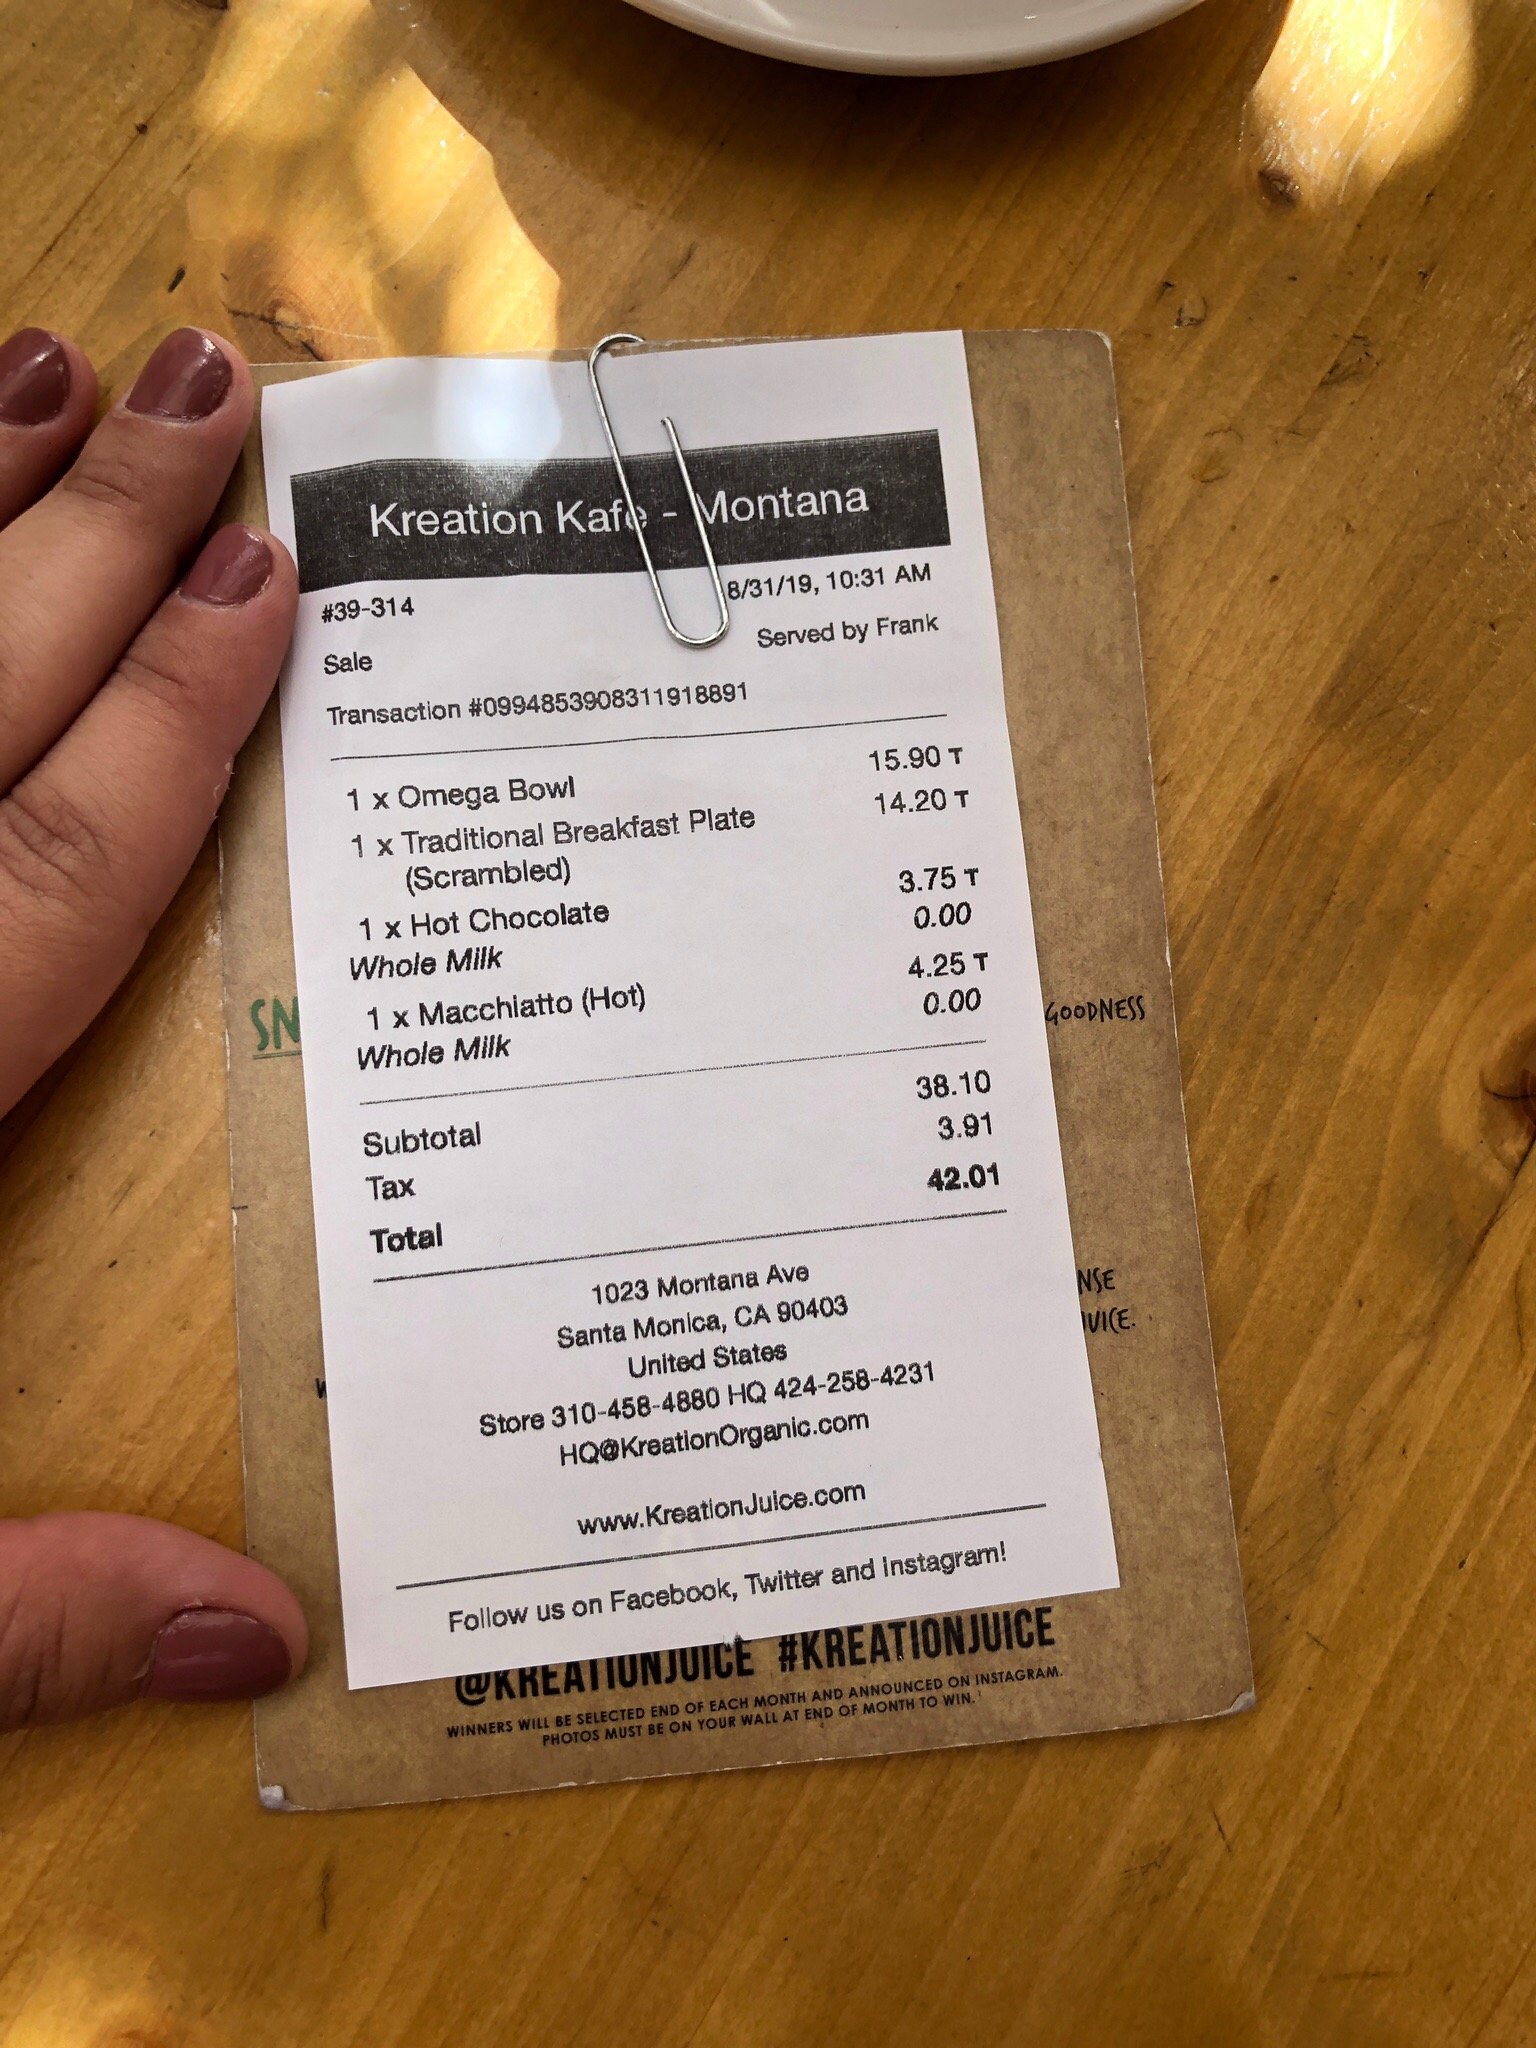 Kreation Kafe - Montana
#39-314 8/31/19, 10:31 AM
Sale Served by Frank
Transaction #0994853908311918891
1 x Omega Bowl 15.90 T
1 x Traditional Breakfast Plate 14.20 T
(Scrambled)
1 x Hot Chocolate 3.75 T
Whole Milk 0.00
1 x Macchiatto (Hot) 4.25 T
Whole Milk 0.00
Subtotal 38.10
Tax 3.91
Total 42.01
1023 Montana Ave
Santa Monica, CA 90403
United States
Store 310-458-4880 HQ 424-258-4231
HQ@KreationOrganic.com
www.KreationJuice.com
Follow us on Facebook, Twitter and Instagram!
GOODNESS
@KREATIONJUICE #KREATIONJUICE
WINNERS WILL BE SELECTED END OF EACH MONTH AND ANNOUNCED ON INSTAGRAM.
PHOTOS MUST BE ON YOUR WALL AT END OF MONTH TO WIN.